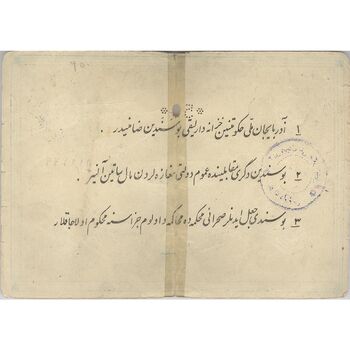 ۹۰
۱ آذربایجان ملی حکومتینین خزانه دارلیقی بو سندین ضامنیدر .
۲ بو سندین دگری مقابلینده عموم دولتی مغازه لردن مال ساتین آلینیر .
۳ بو سندی جعل ایدنلر صحرائی محکمه ده محاکمه و اولوم جزاسنه محکوم اولاجاقلار